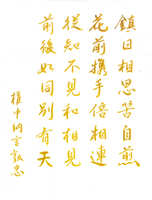 鎮日相思苦自煎
花前攜手倍相連
從知不見和相見
前後如同別有天